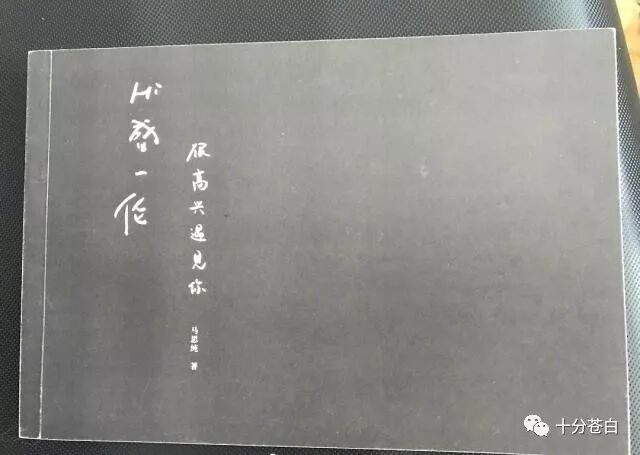 Hi
蔡一伦
很高兴遇见你
马思纯 著
十分苍白